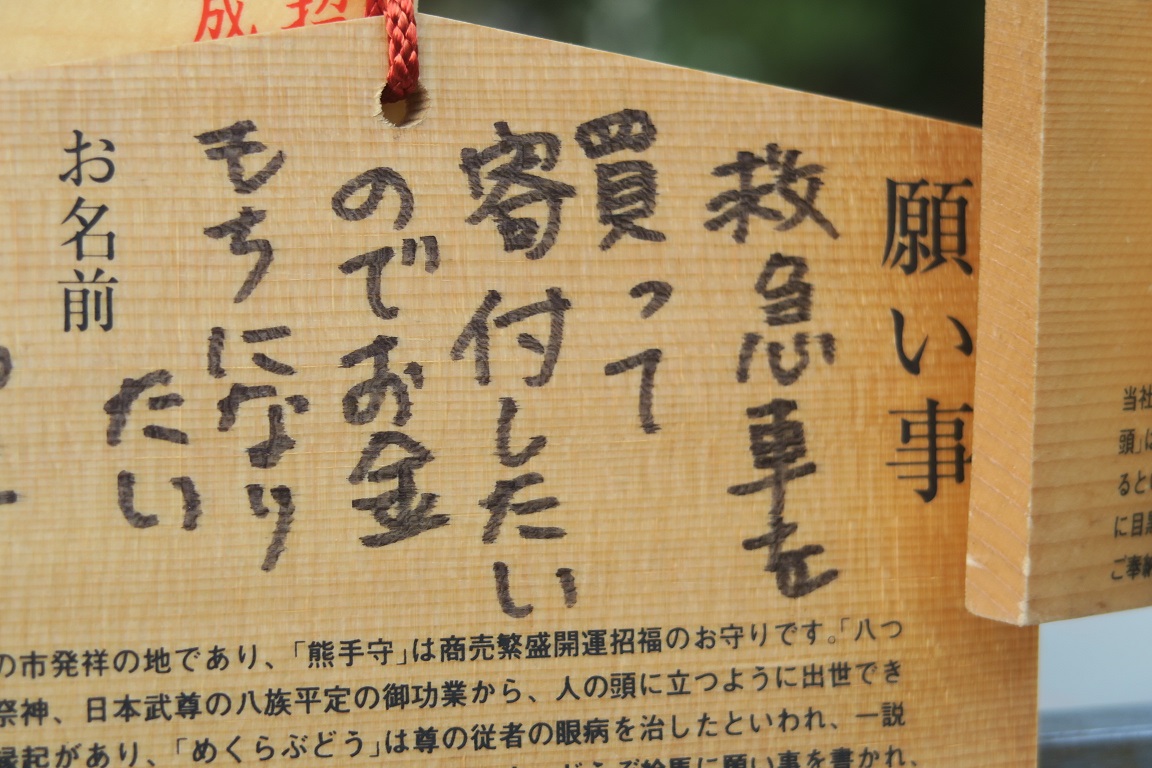 成 招
願い事
救急車を
買って
寄付したい
のでお金
もちになり
たい
お名前
の市発祥の地であり、「熊手守」は商売繁盛開運招福のお守りです。「八つ
祭神、日本武尊の八族平定の御功業から、人の頭に立つように出世でき
縁起があり、「めくらぶどう」は尊の従者の眼病を治したといわれ、一説
どうぞ絵馬に願い事を書かれ、
当社
頭」は
ると
に目
ご奉納